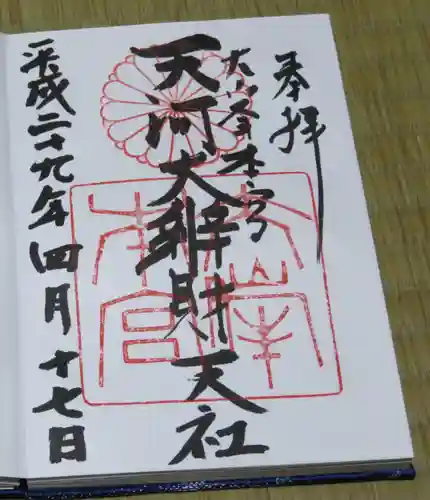 奉拝
大峯本宮
天河大辨財天社
平成二十九年四月十七日